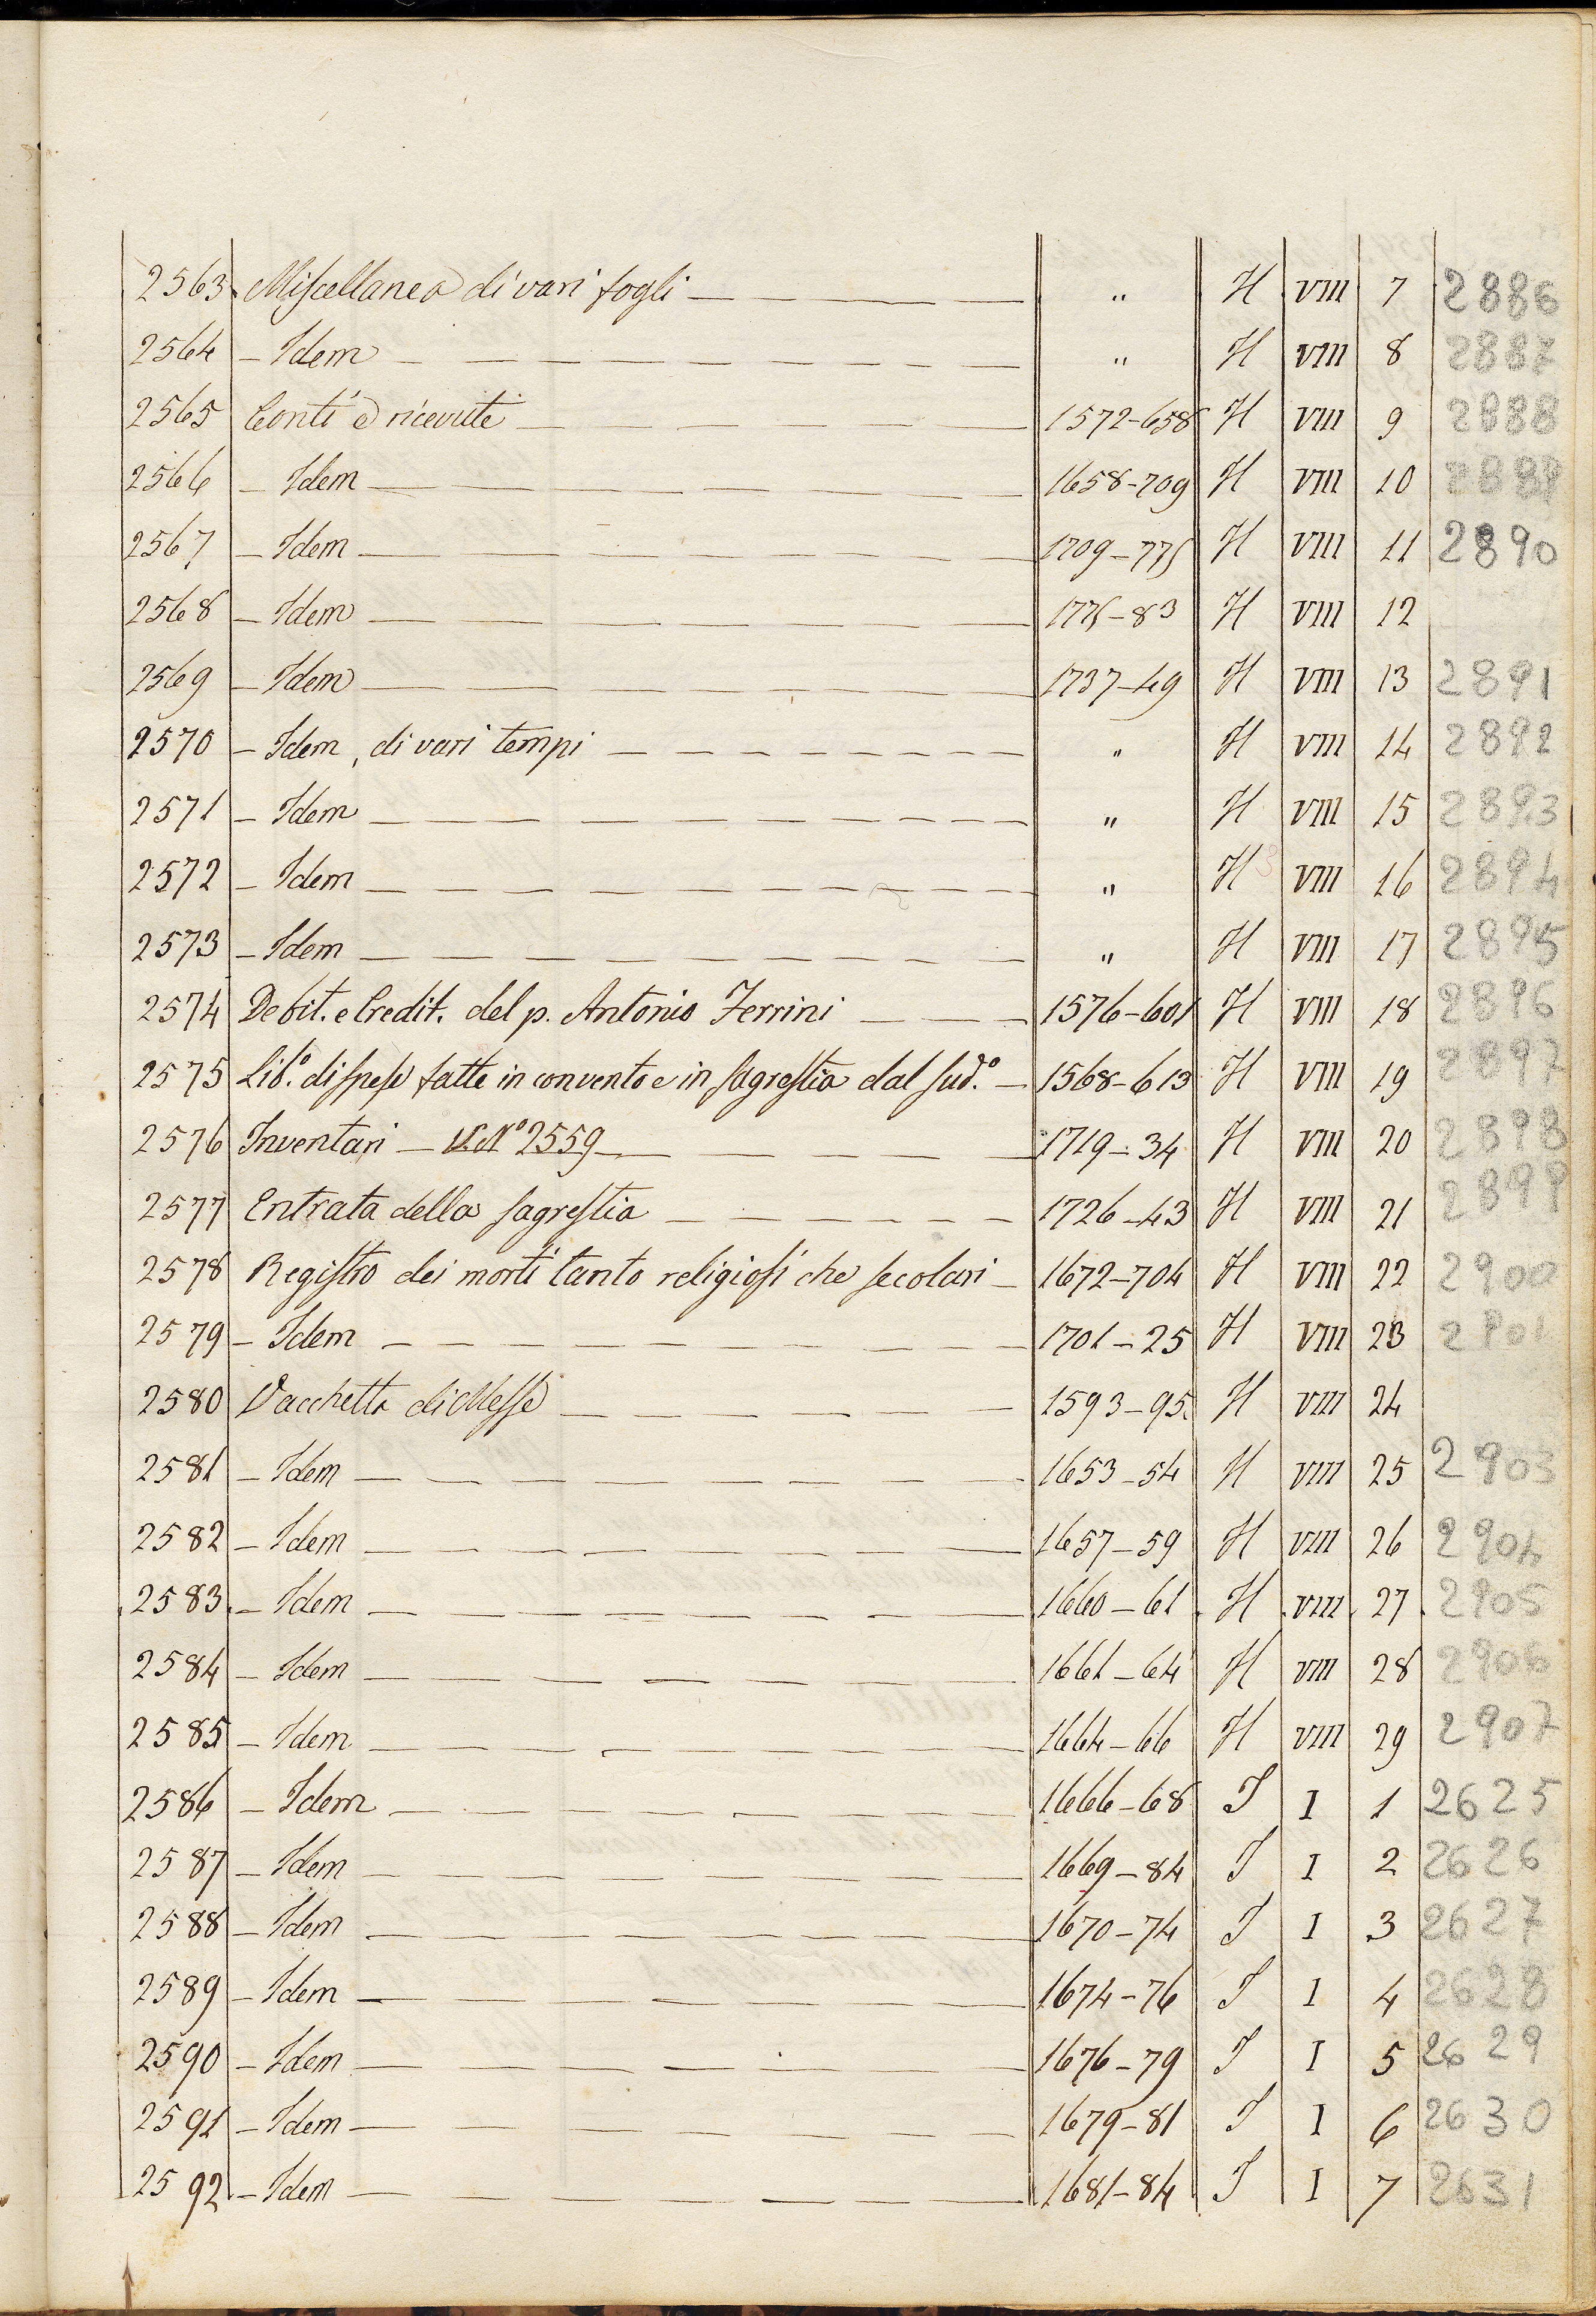 2563 Miscellanea di vari fogli — " H VIII 7 2886
2564 — Idem — " H VIII 8 2887
2565 Conti e ricevute — 1572-658 H VIII 9 2888
2566 — Idem — 1658-709 H VIII 10 2889
2567 — Idem — 1709-775 H VIII 11 2890
2568 — Idem — 1775-83 H VIII 12
2569 — Idem — 1737-49 H VIII 13 2891
2570 — Idem, di vari tempi — " H VIII 14 2892
2571 — Idem — " H VIII 15 2893
2572 — Idem — " H VIII 16 2894
2573 — Idem — " H VIII 17 2895
2574 Debit. e Credit. del p. Antonio Ferrini — 1576-601 H VIII 18 2896
2575 Lib.º di spese fatte in convento e in sagrestia dal sud.º — 1568-613 H VIII 19 2897
2576 Inventari — V. Nº 2559 — 1719-34 H VIII 20 2898
2577 Entrata della sagrestia — 1726-43 H VIII 21 2899
2578 Registro dei morti tanto religiosi che secolari — 1672-704 H VIII 22 2900
2579 — Idem — 1701-25 H VIII 23 2901
2580 Vacchetta di Messe — 1593-95 H VIII 24
2581 — Idem — 1653-54 H VIII 25 2903
2582 — Idem — 1657-59 H VIII 26 2904
2583 — Idem — 1660-61 H VIII 27 2905
2584 — Idem — 1661-64 H VIII 28 2906
2585 — Idem — 1664-66 H VIII 29 2907
2586 — Idem — 1666-68 I I 1 2625
2587 — Idem — 1669-84 I I 2 2626
2588 — Idem — 1670-74 I I 3 2627
2589 — Idem — 1674-76 I I 4 2628
2590 — Idem — 1676-79 I I 5 2629
2591 — Idem — 1679-81 I I 6 2630
2592 — Idem — 1681-84 I I 7 2631